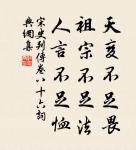 天变不足畏
祖宗不足法
人言不足恤
宋史列傳卷八十六詞
典網集